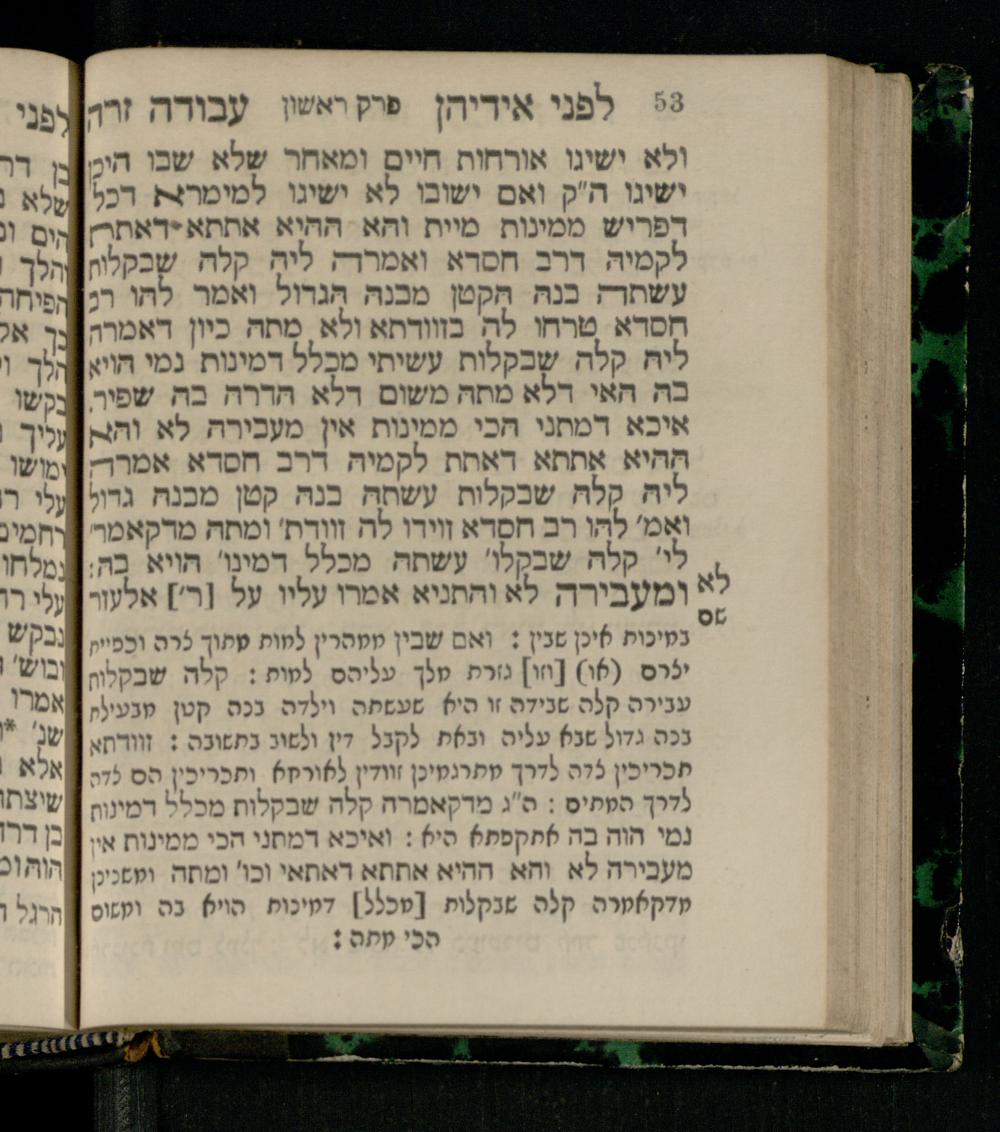 53 לפני אידיהן פרק ראשון עבודה זרה
ולא ישיגו אורחות חיים ומאחר שלא שבו היכן
ישיגו ה"ק ואם ישובו לא ישיגו למימרא דכל
דפריש ממינות מיית והא ההיא אתתא דאתת
לקמיה דרב חסדא ואמרה ליה קלה שבקלות
עשתה בנה הקטן מבנה הגדול ואמר להו רב
חסדא טרחו לה בזוודתא ולא מתה כיון דאמרה
ליה קלה שבקלות עשיתי מכלל דמינות נמי הויא
בה האי דלא מתה משום דלא הדרה בה שפיר.
איכא דמתני הכי ממינות אין מעבירה לא והא
ההיא אתתא דאתת לקמיה דרב חסדא אמרה
ליה קלה שבקלות עשתה בנה קטן מבנה גדול
ואמ' להו רב חסדא זוידו לה זוודת' ומתה מדקאמר'
לי' קלה שבקלו' עשתה מכלל דמינו' הויא בה:
לא ומעבירה לא והתניא אמרו עליו על [ר'] אלעזר
שם
במינות איכן שבין : ואם שבין ממהרין למות מתוך צרה וכפיית
יצרם (או) [וזו] גזרת מלך עליהם למות : קלה שבקלות
עבירה קלה שבידה זו היא שעשתה וילדה בנה קטן מבעילת
בנה גדול שבא עליה ובאת לקבל דין ולשוב בתשובה : זוודתא
תכריכין צדה לדרך מתרגמינן זוודין לאורחא ותכריכין הם צדה
לדרך המתים : ה"ג מדקאמרה קלה שבקלות מכלל דמינות
נמי הוה בה אתקפתא היא : ואיכא דמתני הכי ממינות אין
מעבירה לא והא ההיא אתתא דאתאי וכו' ומתה ומשנינן
מדקאמרה קלה שבקלות [מכלל] דמינות הויא בה ומשום
הכי מתה :
לפני
בן דר
שלא
הים
והלך
הפיחה
כך
הלך
בקשו
עליך
ימושו
עלי
רחמים
נמלחו
עלי
נבקש
ובוש'
אמרו
שנ'
אלא
שיצתה
בן דרד
הוה
הרגל